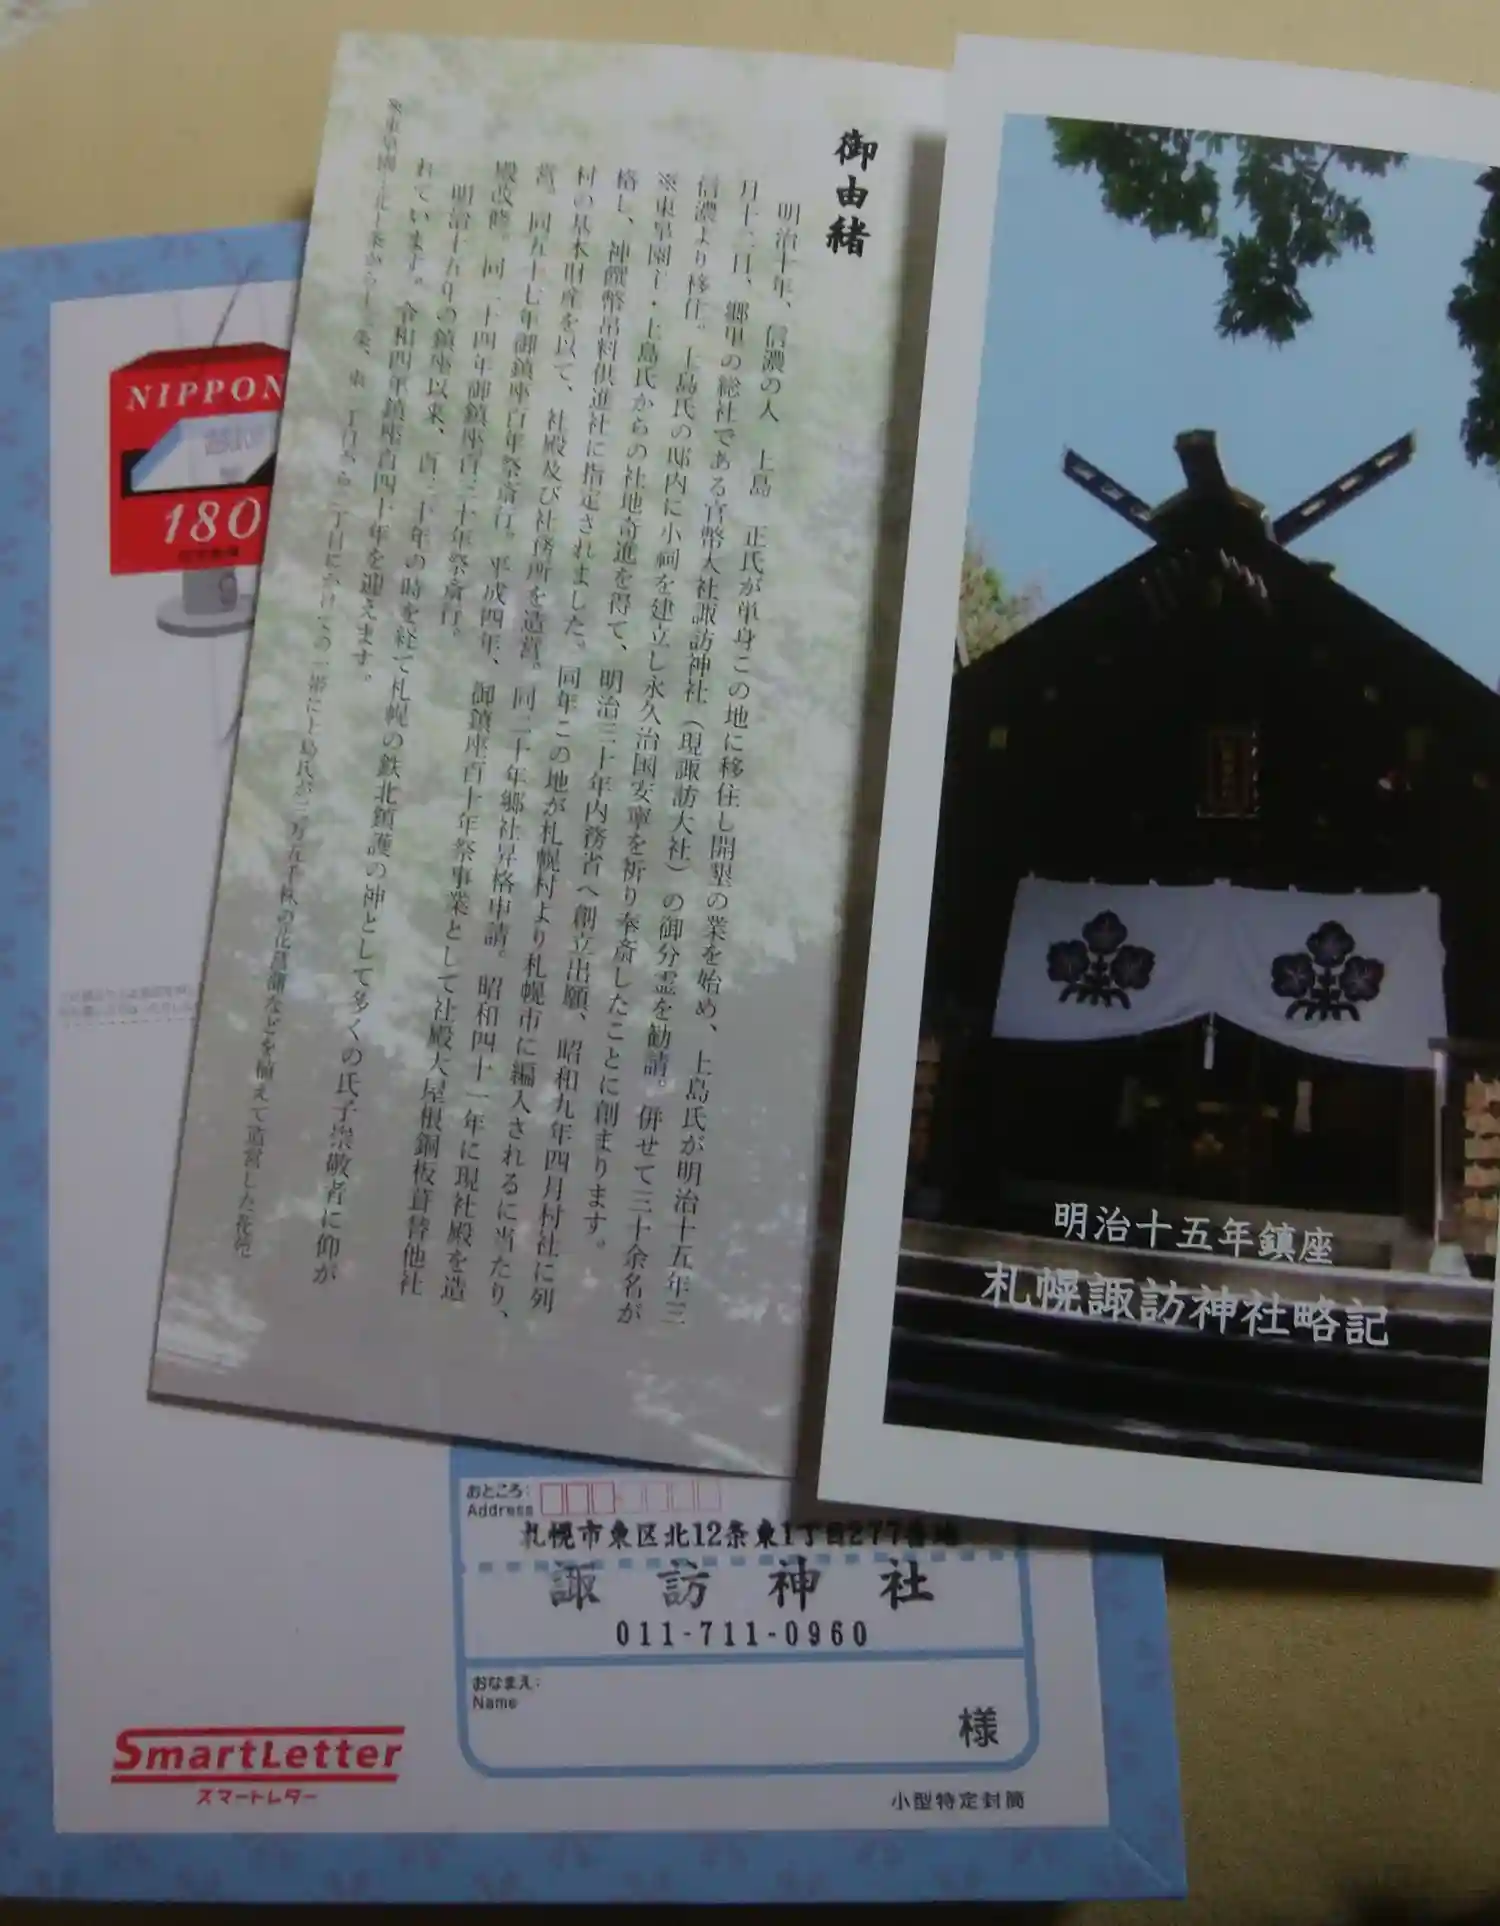 御由緒
明治十年、信濃の人 上島 正氏が単身この地に移住し開墾の業を始め、上島氏が明治十五年三
月十二日、郷里の総社である官幣大社諏訪神社（現諏訪大社）の御分霊を勧請。併せて三十余名が
信濃より移住。上島氏の邸内に小祠を建立し永久治国安寧を祈り奉斎したことに創まります。
※東皐園主・上島氏からの社地寄進を得て、明治三十年内務省へ創立出願、昭和九年四月村社に列
格し、神饌幣帛料供進社に指定されました。同年この地が札幌村より札幌市に編入されるに当たり、
村の基本財産を以て、社殿及び社務所を造営。同二十年郷社昇格申請。昭和四十一年に現社殿を造
営。同五十七年御鎮座百年祭斎行。平成四年、御鎮座百十年祭事業として社殿大屋根銅板葺替他社
殿改修。同二十四年御鎮座百三十年祭斎行。
明治十五年の鎮座以来、百三十年の時を経て札幌の鉄北鎮護の神として多くの氏子崇敬者に仰が
れています。令和四年鎮座百四十年を迎えます。
※東皐園:北十条から十二条、東一丁目から二丁目にかけての一帯に上島氏が三万五千株の花菖蒲などを植えて造営した花苑
明治十五年鎮座
札幌諏訪神社略記
NIPPON
180
おところ:
Address
札幌市東区北12条東1丁目277番地
諏訪神社
011-711-0960
おなまえ:
Name
様
SmartLetter
スマートレター
小型特定封筒